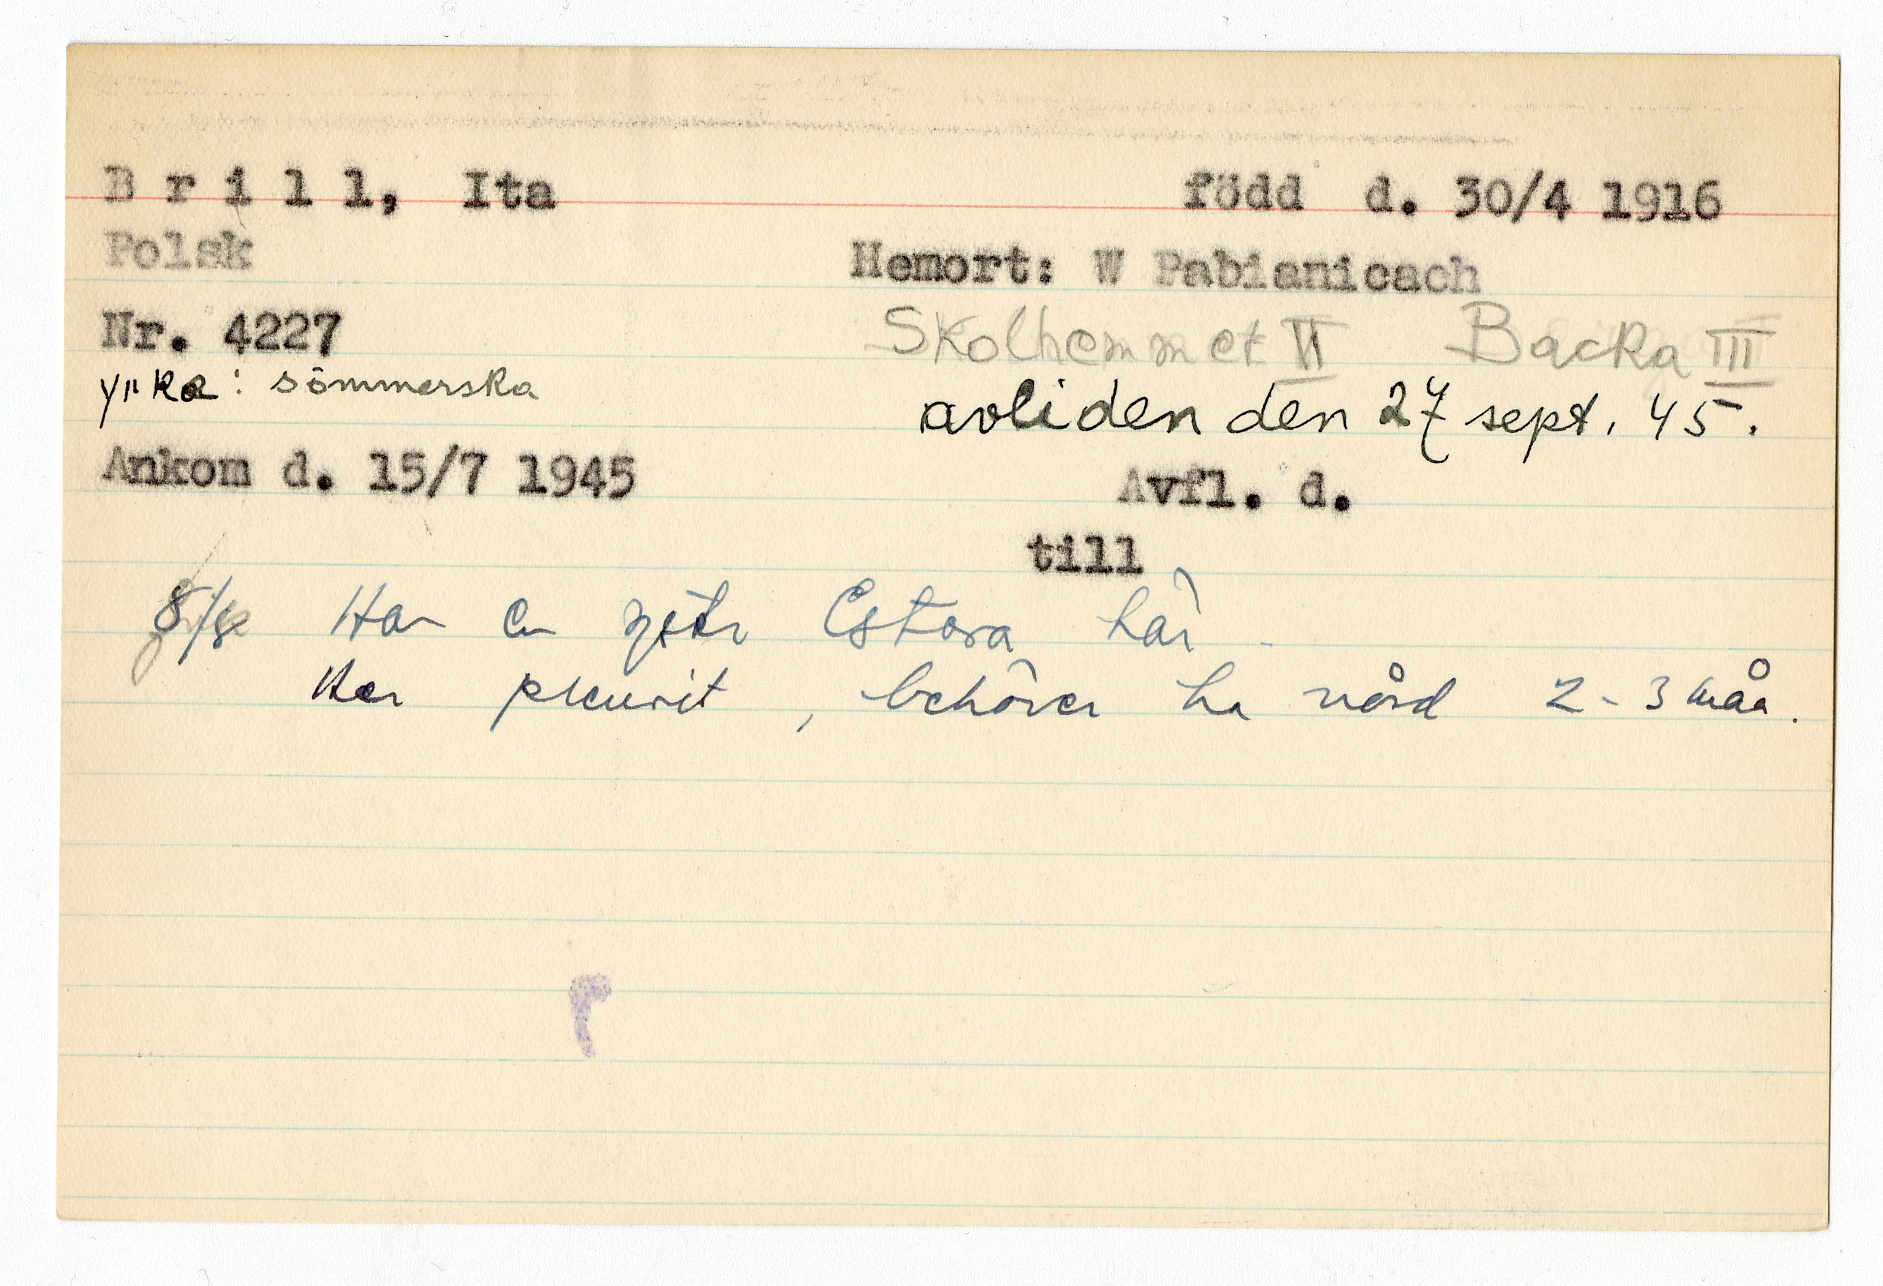 B r i l l, Ita född d. 30/4 1916
Polsk Hemort: W Pabianicach
Nr. 4227 Skolhemmet II Backa III
yrke: sömmerska avliden den 27 sept. 45.
Ankom d. 15/7 1945 Avfl. d.
till
8/8 Har en Estera här
Har pleurit, behöver ha vård 2-3 mån.